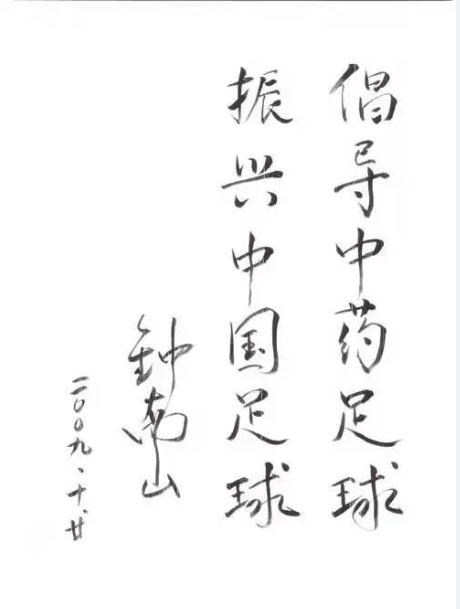 倡导中药足球
振兴中国足球
钟南山
二〇〇九、十、廿